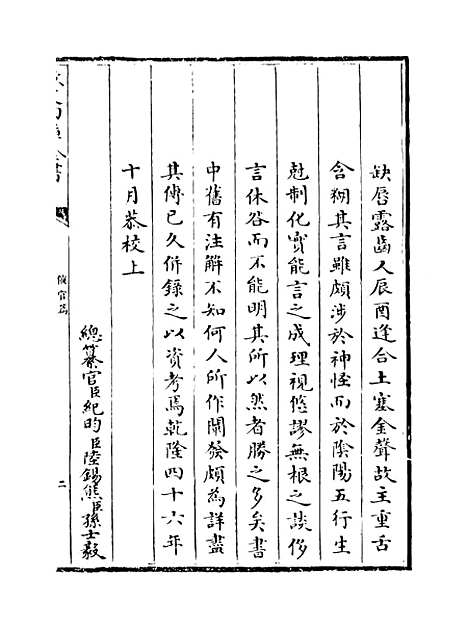 缺唇露齒人辰酉逢合土塞金聲故主重舌
含糊其言雖頗涉於神怪而於陰陽五行生
尅制化實能言之成理視悠謬無根之談侈
言休咎而不能明其所以然者勝之多矣書
中舊有注解不知何人所作闡發頗為詳盡
其傳已久併錄之以資考焉乾隆四十六年
十月恭校上
總纂官臣紀昀臣陸錫熊臣孫士毅
二